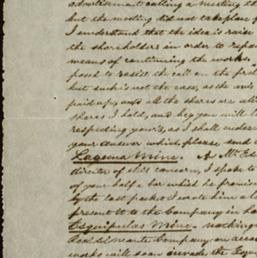 advertisement calling a meeting th
but the meeting did not take place f
I understand that the idea is raise
the shareholders in order to repa
means of continuing the works.
posed to resist the call on the
but such is not the case, as the
paid up and all the shares are
shares I hold, and beg you will
respecting your's, as I shall
your answer which please send
Laguna Mine. As Mr
director of this concern, I spoke to
of your half, but which he promised
by the last packet I wrote him
present it to the Company in
Esquipulas Mine, nothing
Company on
works will soon